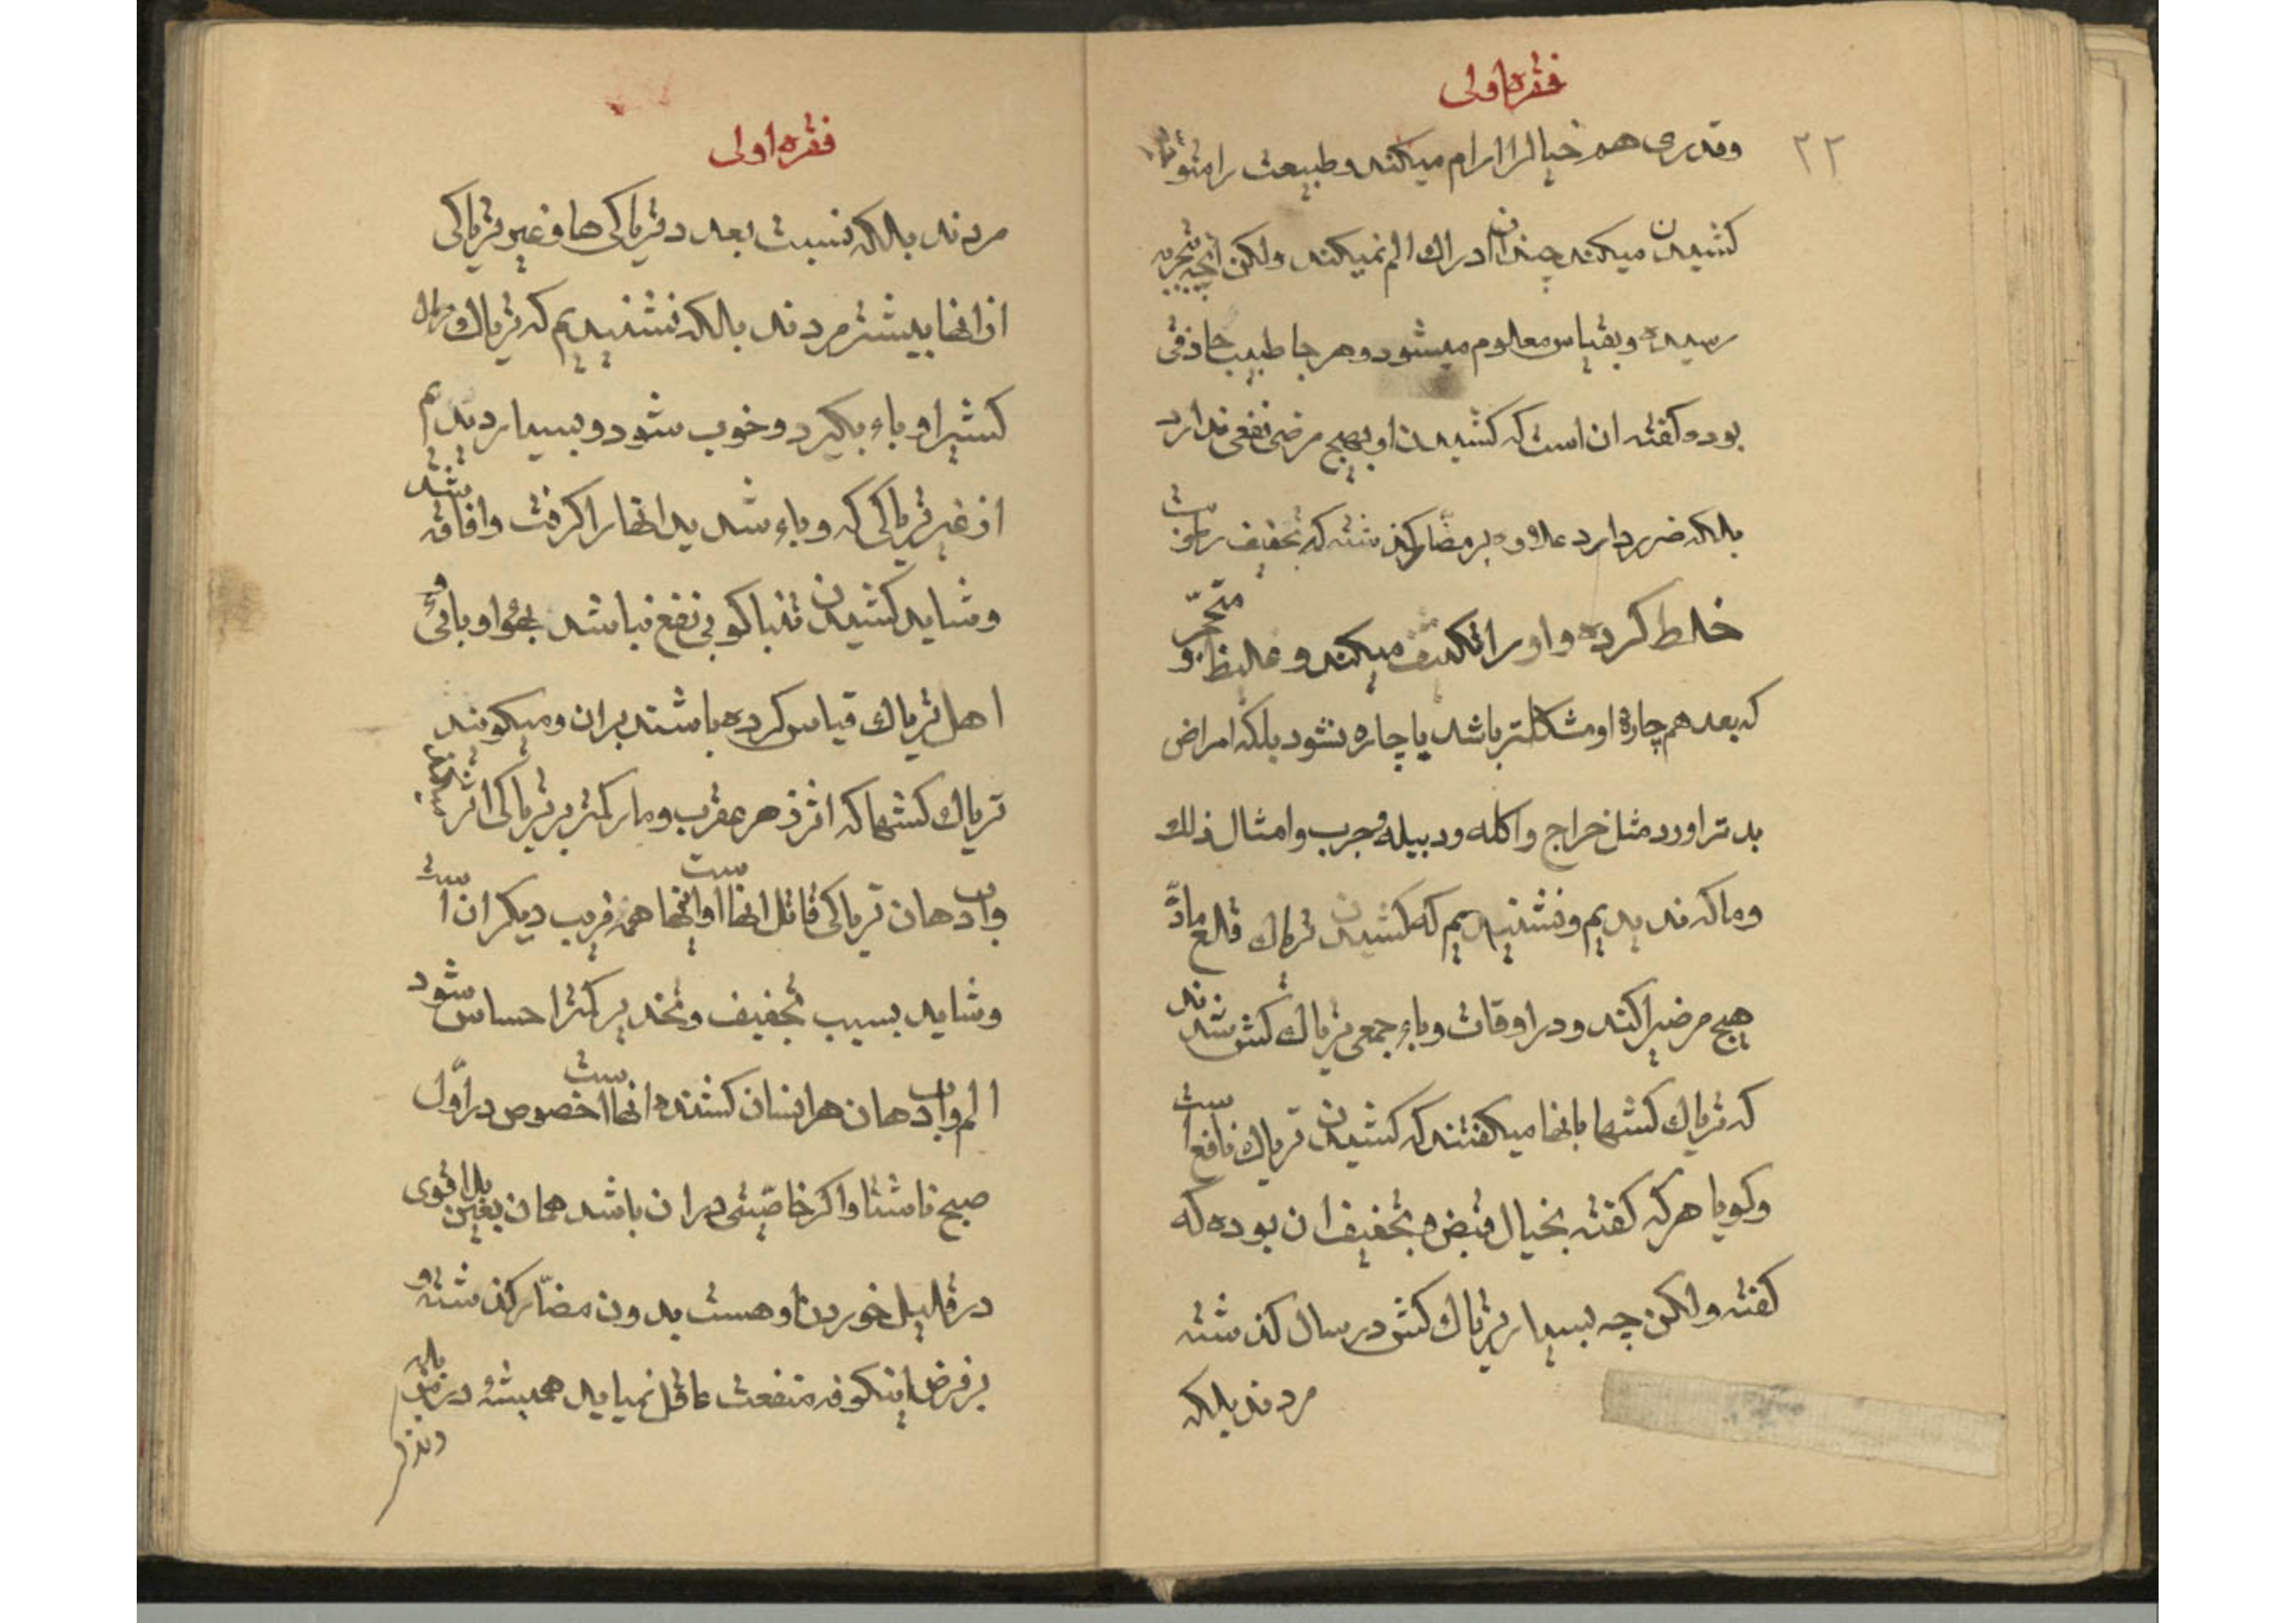 فقره اولی
۲۲
وقدری هم خیالرا ارام میکند وطبیعت را متو
کشیدن میکند چندان ادراك الم نمیکند ولکن انچه بتجربه
رسیده وبقیاس معلوم میشود وهر جا طبیب حاذقی
بوده کفته ان است که کشیدن او بهیچ مرضی نفعی ندارد
بلکه ضرر دارد علاوه بر مضار کذشته که تخفیف رطوبت
خلط کرده واورا تکثیف میکند وغلیظ و متحجر
که بعد هم چارهٔ او مشکلتر باشد یا چاره نشود بلکه امراض
بدتر اورد مثل خراج واکله ودبیله وجرب وامثال ذلك
وما که ندیدیم ونشنیدیم که کشیدن تریاك قلع مادّ
هیچ مرضیرا کند ودر اوقات وباء جمعی تریاك کش شدند
که تریاك کشها بانها میکفتند که کشیدن تریاك نافع است
وکویا هر که کفته بخیال قبض و تخفیف ان بوده که
کفته ولکن چه بسیار تریاك کش در سال کذشته
مردند بلکه
فقره اولی
مردند بلکه نسبت بعدد تریاکی ها وغیر تریاکی
از انها بیشتر مردند بلکه نشنیدیم که تریاك
کشیرا وباء بکیرد وخوب شود وبسیار دیدیم
از غیر تریاکی که وباء شدید انها را کرفت وافاقه شد
وشاید کشیدن تنباکو بی نفع نباشد بجهة او بائی و
اهل تریاك قیاس کرده باشند بران ومیکویند
تریاك کشها که اثر زهر عقرب ومار کمتر بر تریاکی اثر
واب دهان تریاکی قاتل انها است واینها همه فریب دیکران است
وشاید بسبب تخفیف وتخدیر کمتر احساس شود
الم واب دهان هر انسان کشنده انها است خصوص در اوّل
صبح ناشتا واکر خاصّیتی در ان باشد همان بعین بل اقوی
در قلیل خوردن او هست بدون مضارّ کذشته و
بر فرض اینکونه منفعت عاقل نمیاید همیشه در